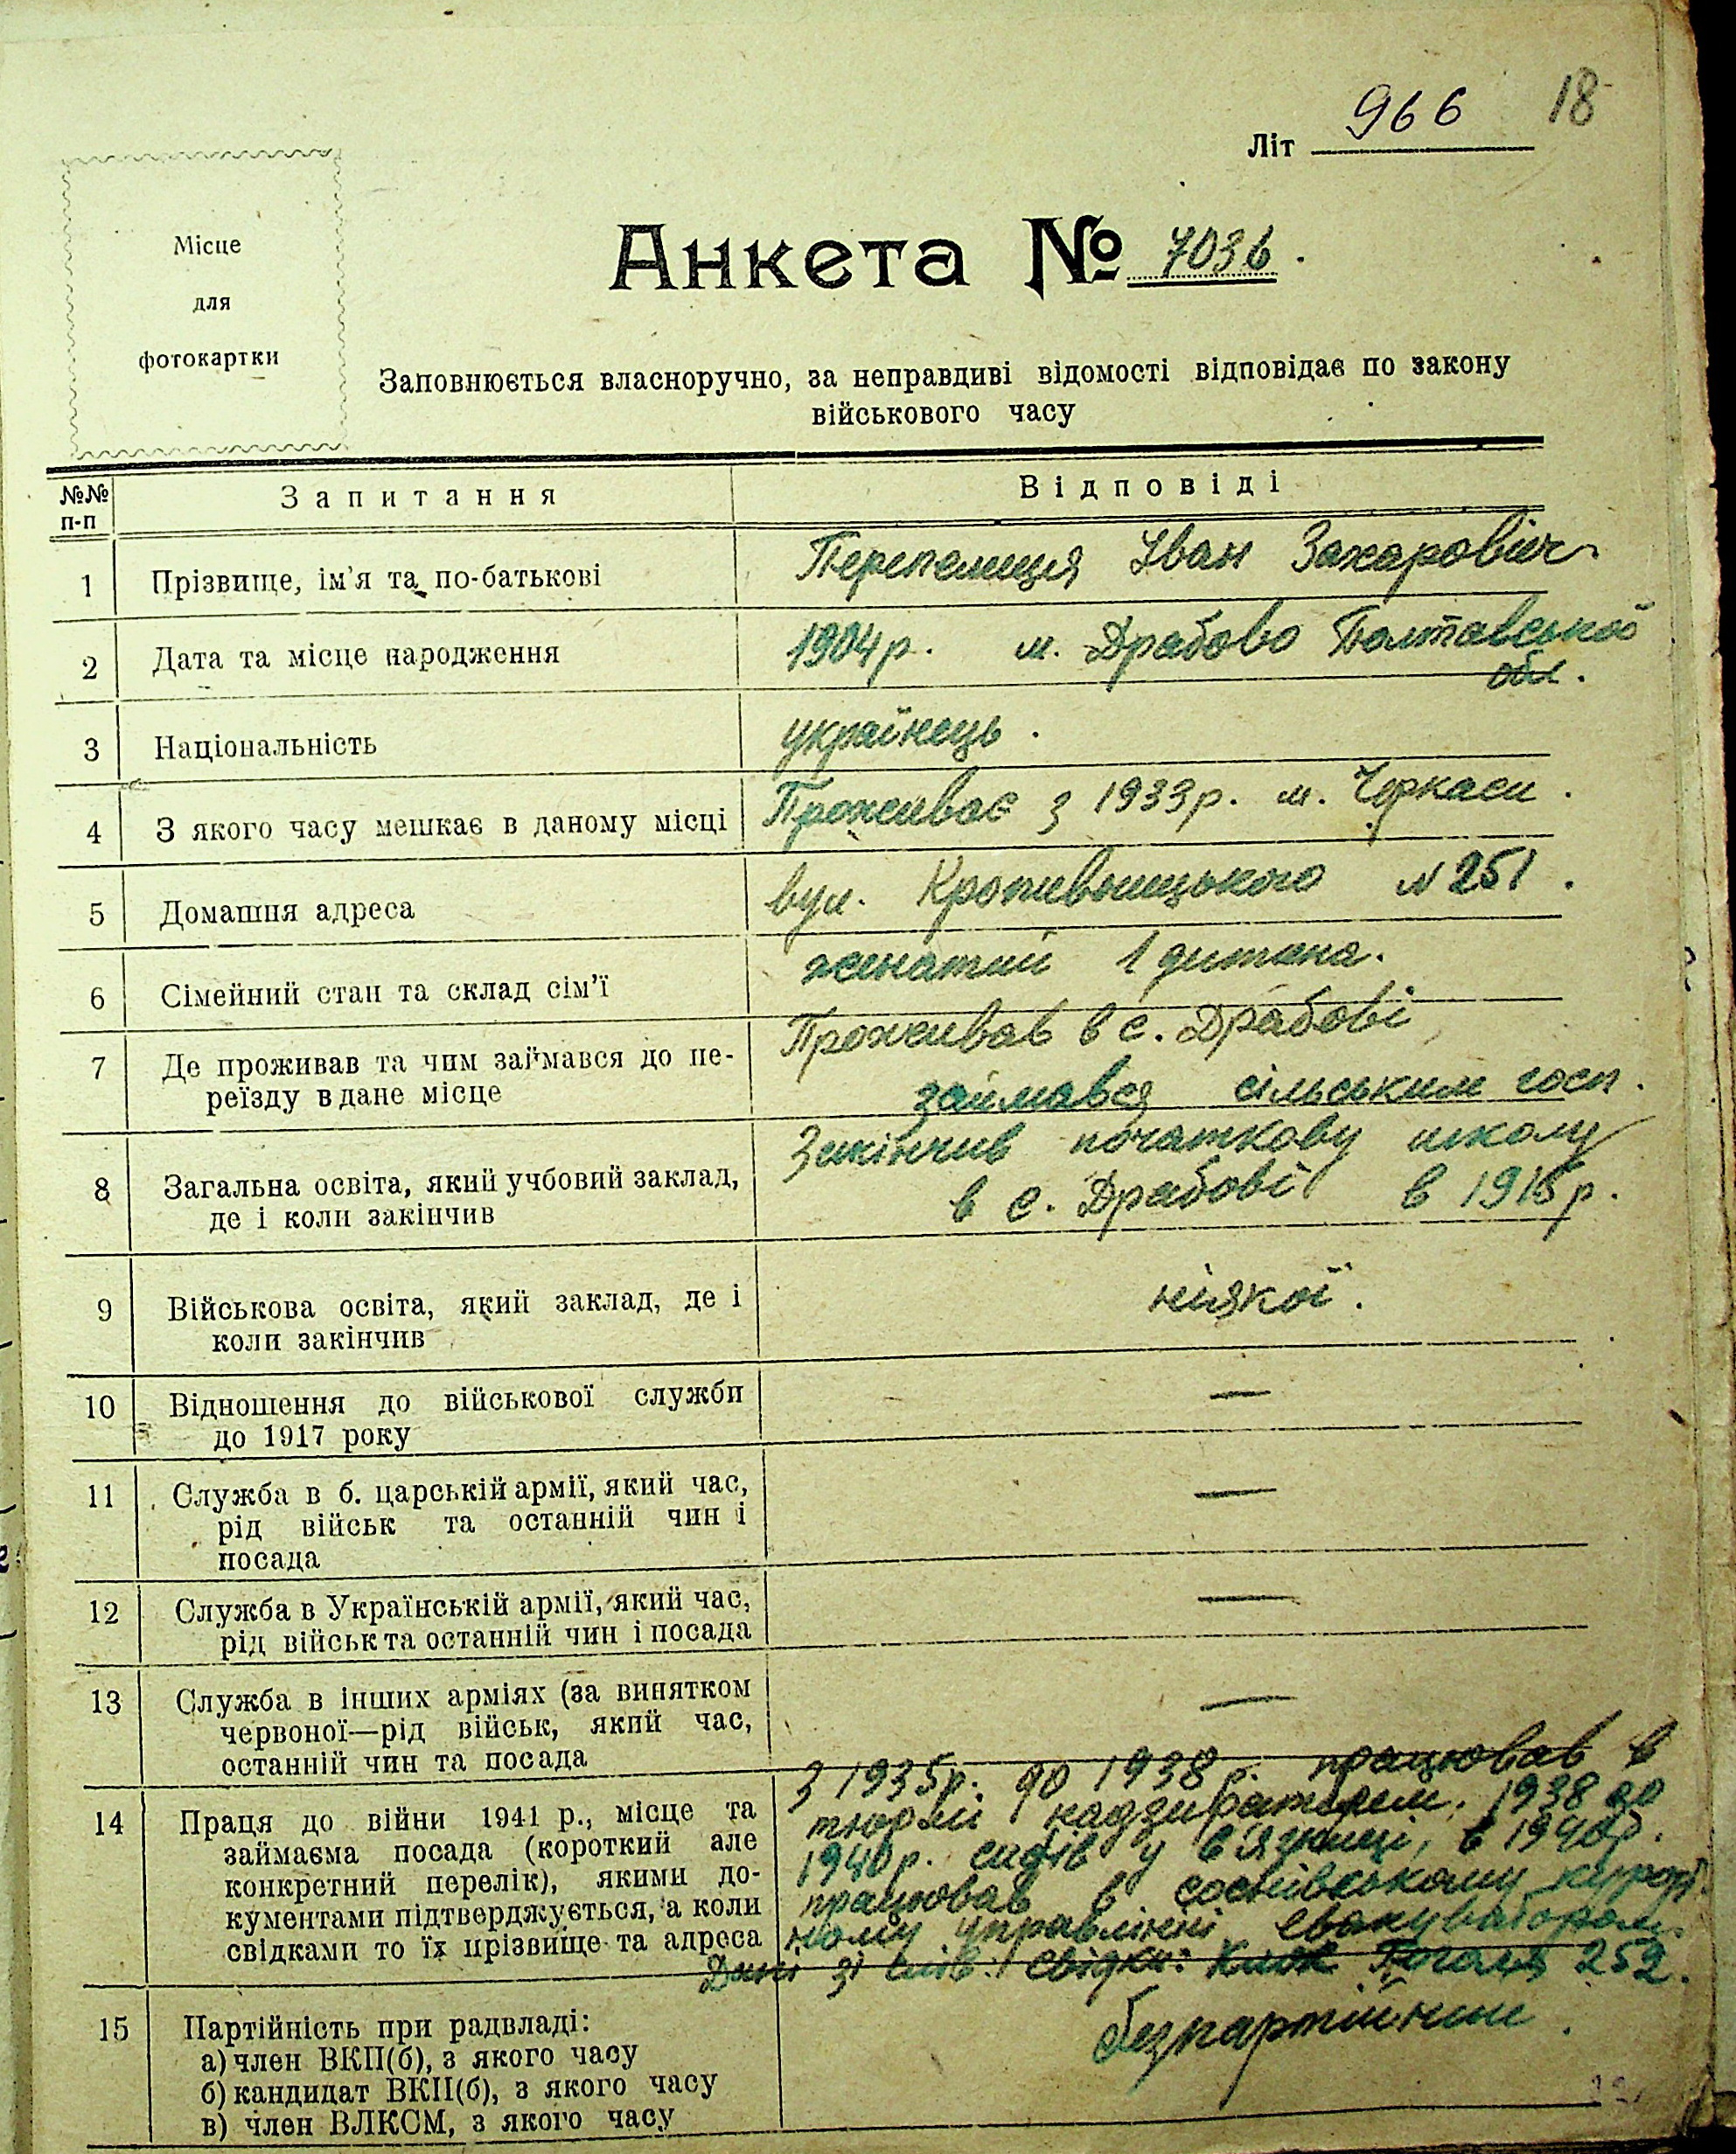 966 18
Літ
Місце
для
фотокартки
Анкета № 7036.
Заповнюється власноручно, за неправдиві відомості відповідає по закону
військового часу
№№
п-п
Запитання
Відповіді
1 Прізвище, ім'я та по-батькові
Перепелиця Іван Захаровіч
2 Дата та місце народження
1904р. м. Драбово Полтавської
обл.
3 Національність
українець.
4 З якого часу мешкає в даному місці
Проживає з 1933р. м. Черкаси.
5 Домашня адреса
вул. Кропивницького N 251.
6 Сімейний стан та склад сім'ї
женатий 1 дитина.
7 Де проживав та чим займався до пе-
реїзду в дане місце
Проживав в с. Драбові
займався сільським госп.
8 Загальна освіта, який учбовий заклад,
де і коли закінчив
Закінчив початкову школу
в с. Драбові в 1915р.
9 Військова освіта, який заклад, де і
коли закінчив
ніякої.
10 Відношення до військової служби
до 1917 року
—
11 Служба в б. царській армії, який час,
рід військ та останній чин і
посада
—
12 Служба в Українській армії, який час,
рід військ та останній чин і посада
—
13 Служба в інших арміях (за винятком
червоної—рід військ, який час,
останній чин та посада
—
14 Праця до війни 1941 р., місце та
займаєма посада (короткий але
конкретний перелік), якими до-
кументами підтверджується, а коли
свідками то їх прізвище та адреса
З 1935р. до 1938 р. працював в
тюрмі надзирателем, 1938 до
1940р. сидів у в'язниці, в 1940р.
працював в соснівському курорт
ному управлінні
Дані зі слів: свідки: 252.
15 Партійність при радвладі:
а) член ВКП(б), з якого часу
б) кандидат ВКП(б), з якого часу
в) член ВЛКСМ, з якого часу
безпартійний.